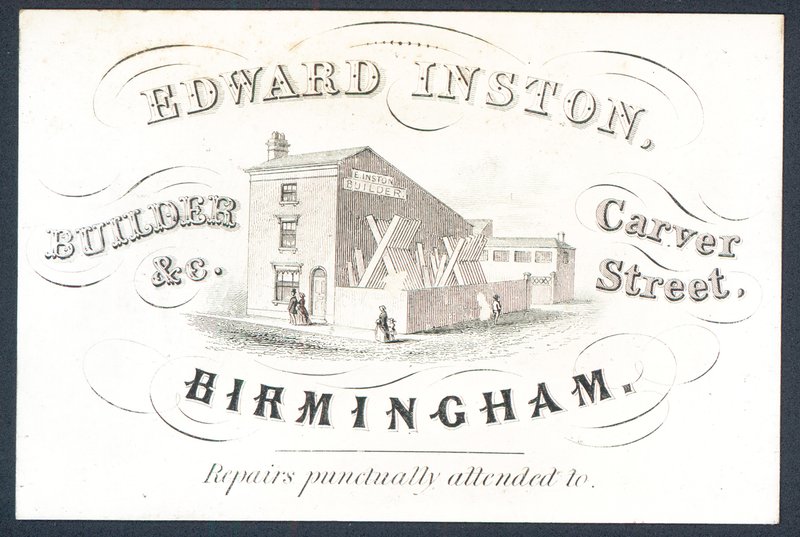 EDWARD INSTON,
E. INSTON
BUILDER
BUILDER
&c.
Carver
Street.
BIRMINGHAM.
Repairs punctually attended to.